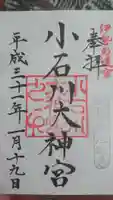 奉拝
小石川大神宮
平成三十一年一月十九日